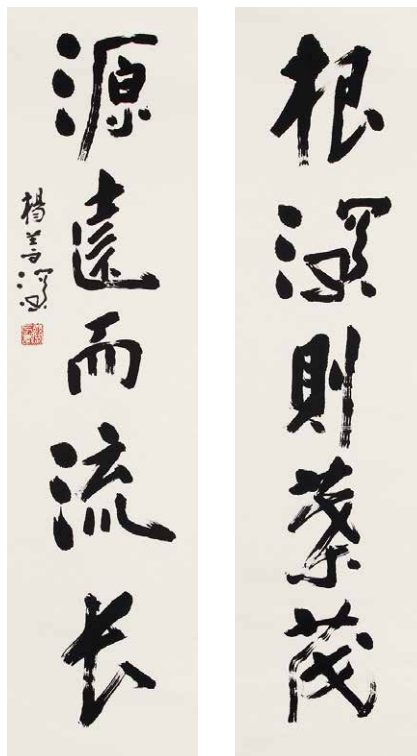 根深則葉茂
源遠而流长
楊善深